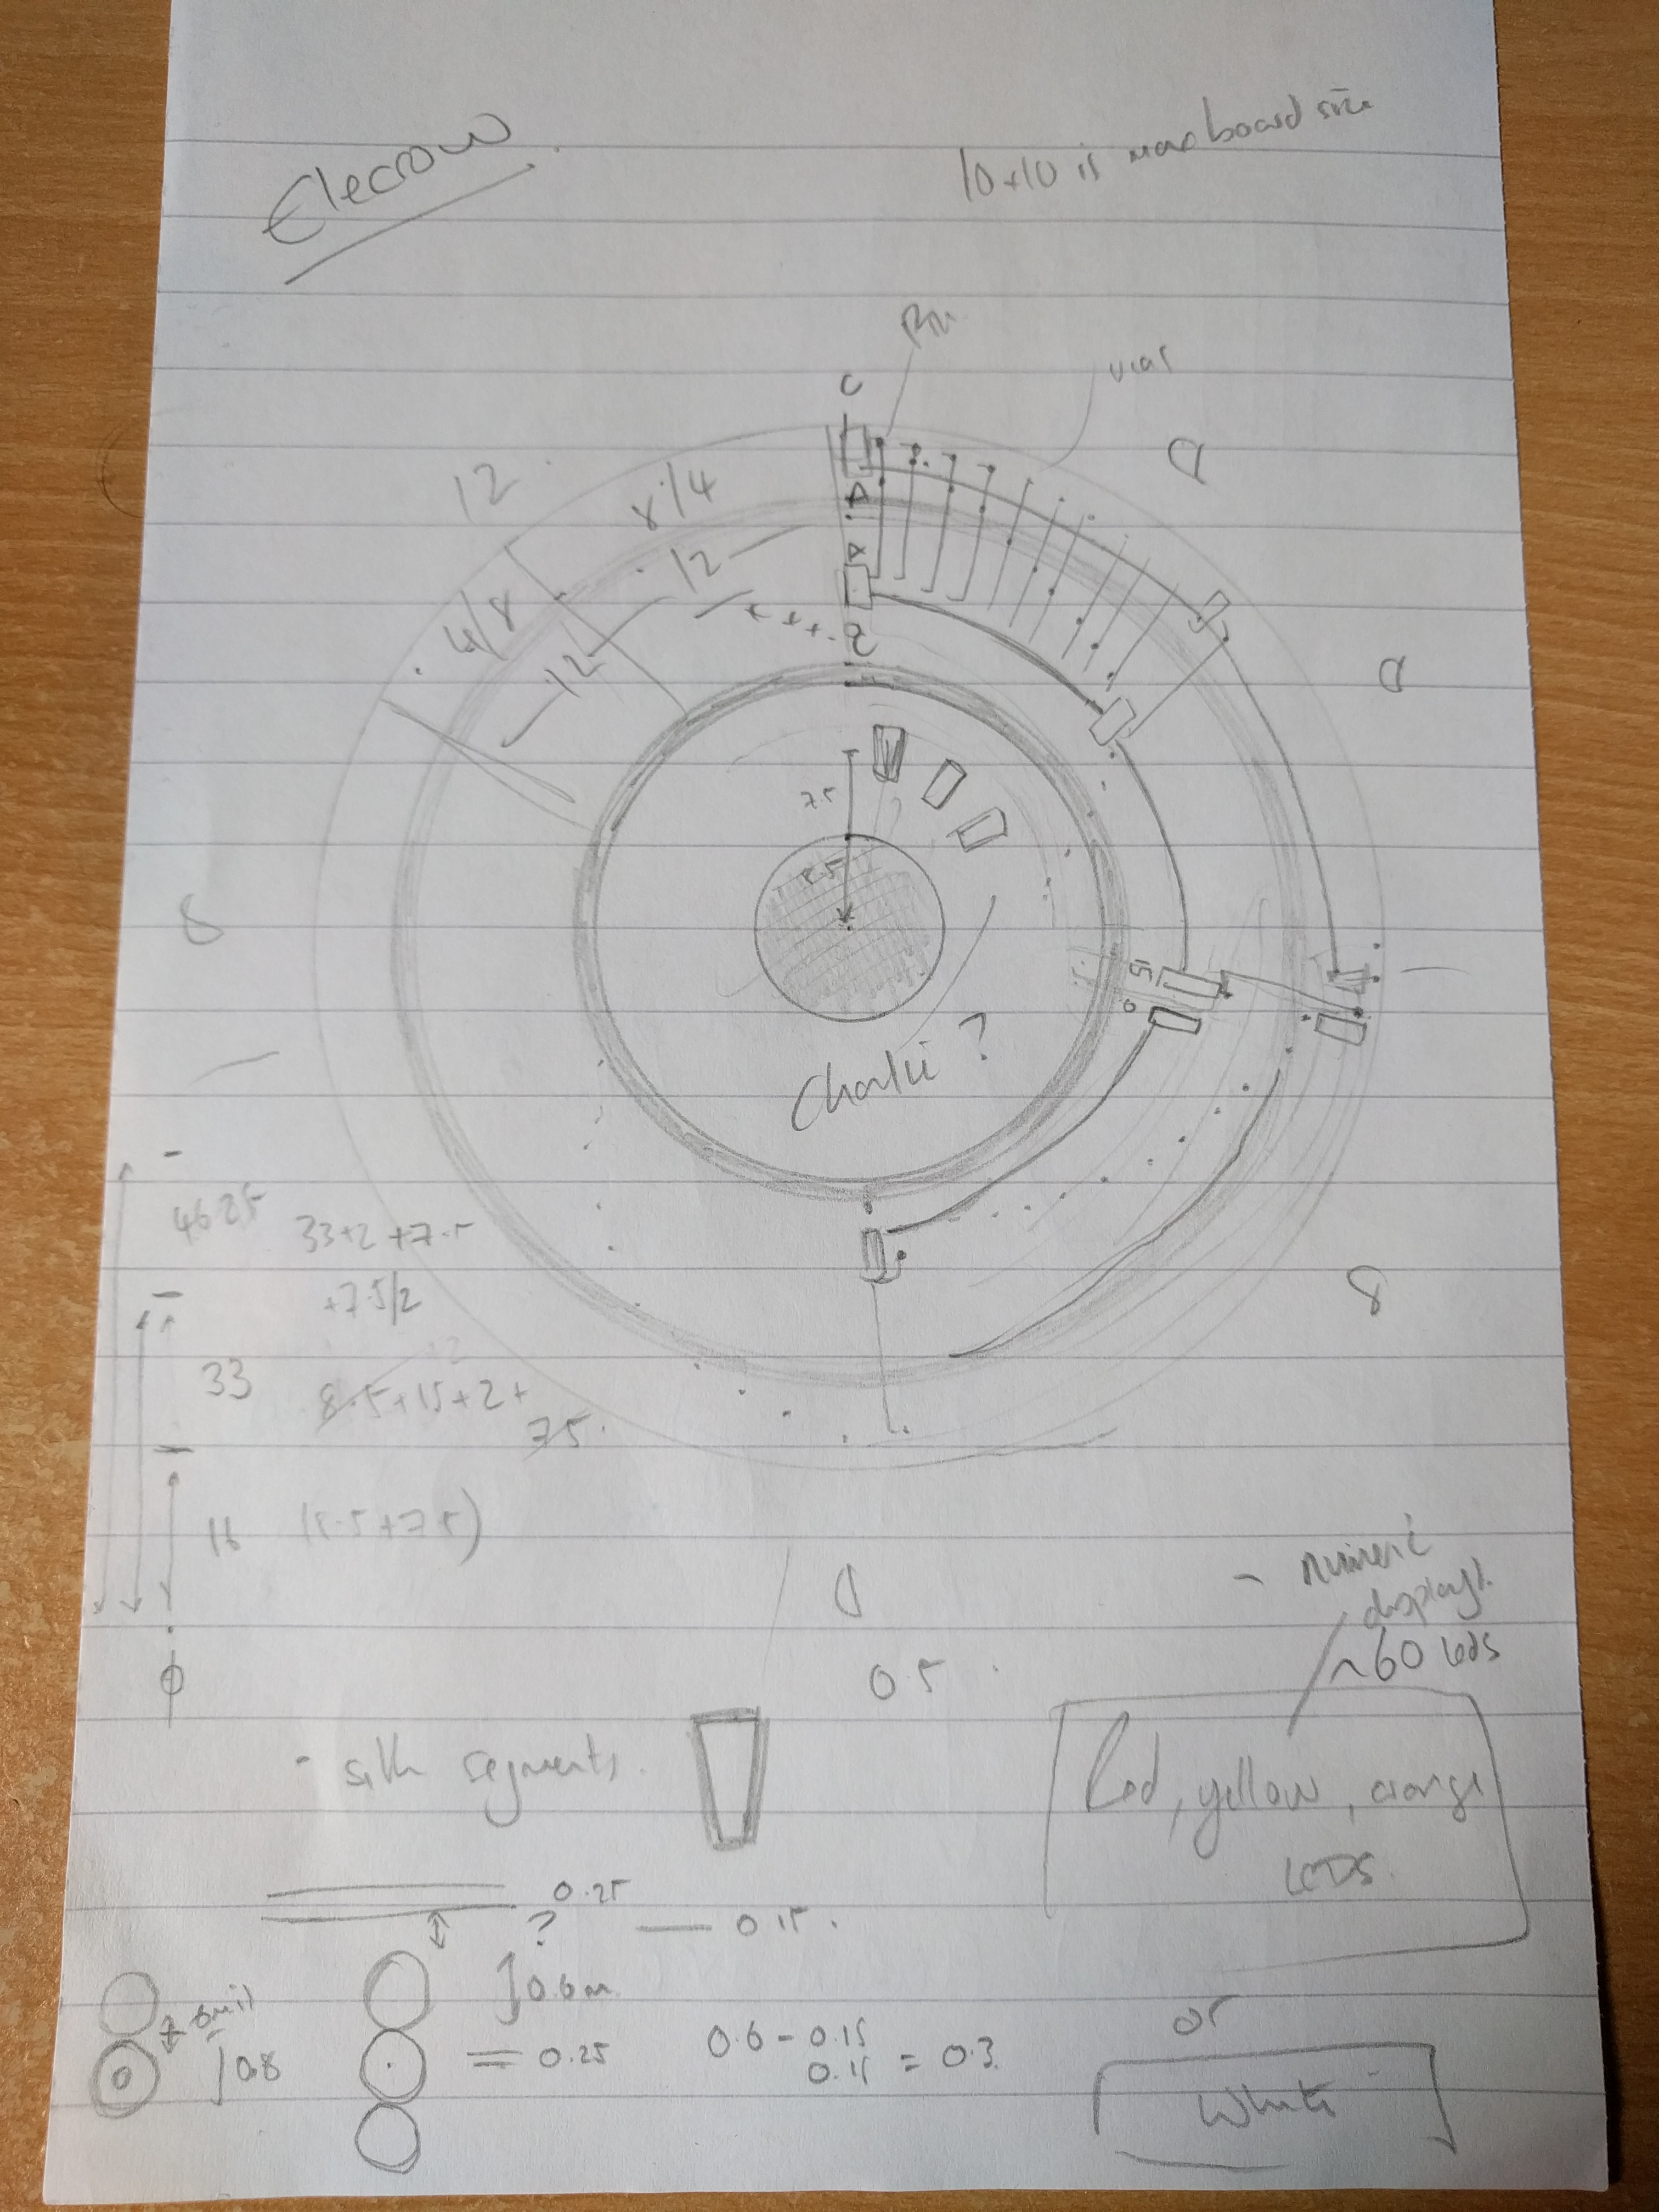 Elecrow
10x10 is max board size
Pin
vias
C
D
12
8/4
12
4/8
12
A
A
B
D
7.5
8.5
15
0
8
Charlie ?
46.25
33+2+7.5
+7.5/2
33
8.5+15+2+
7.5
16
(8.5+7.5)
8
D
- numeric
displays
~60 leds
0.5
- silk segments.
Red, yellow, orange
LEDS.
0.25
? — 0.15.
0.6m
6mil
0.8
= 0.25
0.6 - 0.15
0.15 = 0.3
or
White